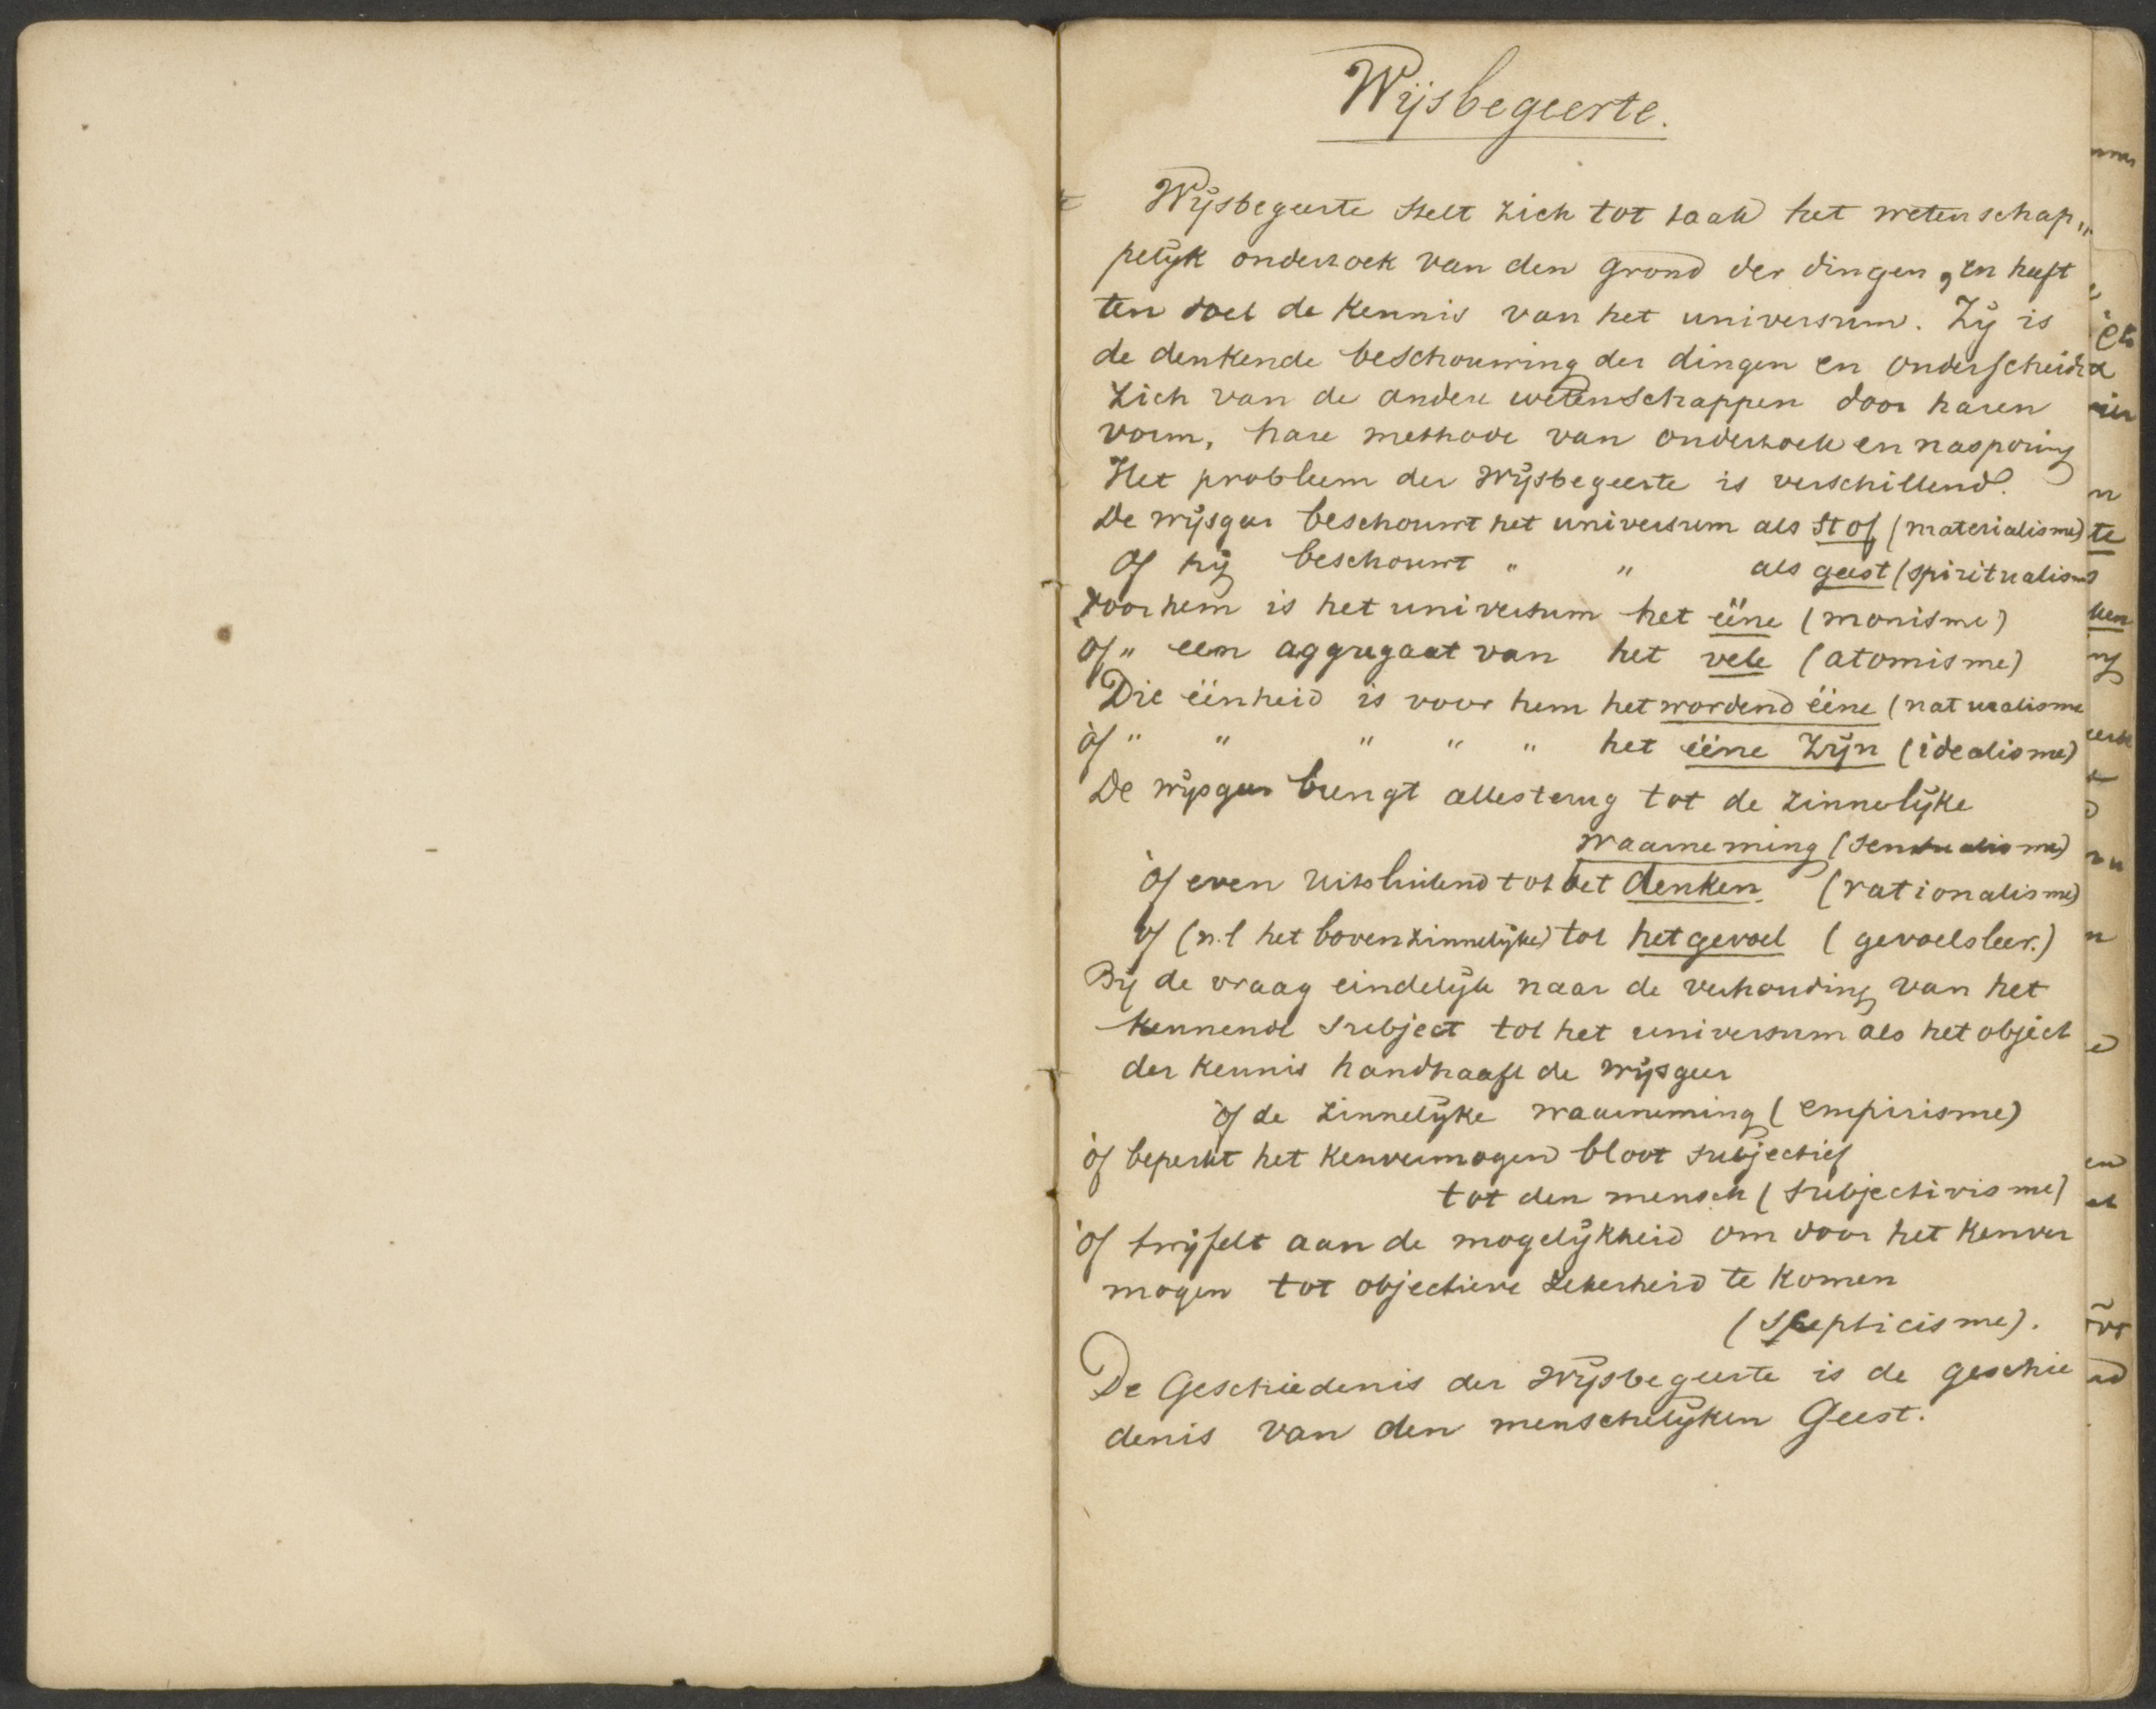 Wijsbegeerte.
Wijsbegeerte stelt zich tot taak het wetenschap„
pelijk onderzoek van den grond der dingen, en heeft
ten doel de kennis van het universum. Zij is
de denkende beschouwing der dingen en onderscheidt
zich van de andere wetenschappen door haren
vorm, hare methode van onderzoek en nasporing
Het probleem der wijsbegeerte is verschillend.
De wijsgeer beschouwt het universum als stof (materialisme)
Of hij beschouwt " " als geest (spiritualisme
voor hem is het universum het ééne (monisme)
of " een aggregaat van het vele (atomisme)
Die éénheid is voor hem het wordend ééne (naturalisme
òf " " " " " het ééne zijn (idealisme)
De wijsgeer brengt alles terug tot de zinnelijke
waarneming (sensualisme)
òf even uitsluitend tot het denken. (rationalisme)
òf (n.l het bovenzinnelijke) tot het gevoel (gevoelsleer.)
Bij de vraag eindelijk naar de verhouding van het
kennende subject tot het universum als het object
der kennis handhaaft de wijsgeer
òf de zinnelijke waarneming (empirisme)
òf beperkt het kenvermogen bloot subjectief
tot den mensch (subjectivisme)
òf twijfelt aan de mogelijkheid om door het kenver
mogen tot objectieve zekerheid te komen
(scepticisme).
De Geschiedenis der wijsbegeerte is de geschie
denis van den menschelijken Geest.